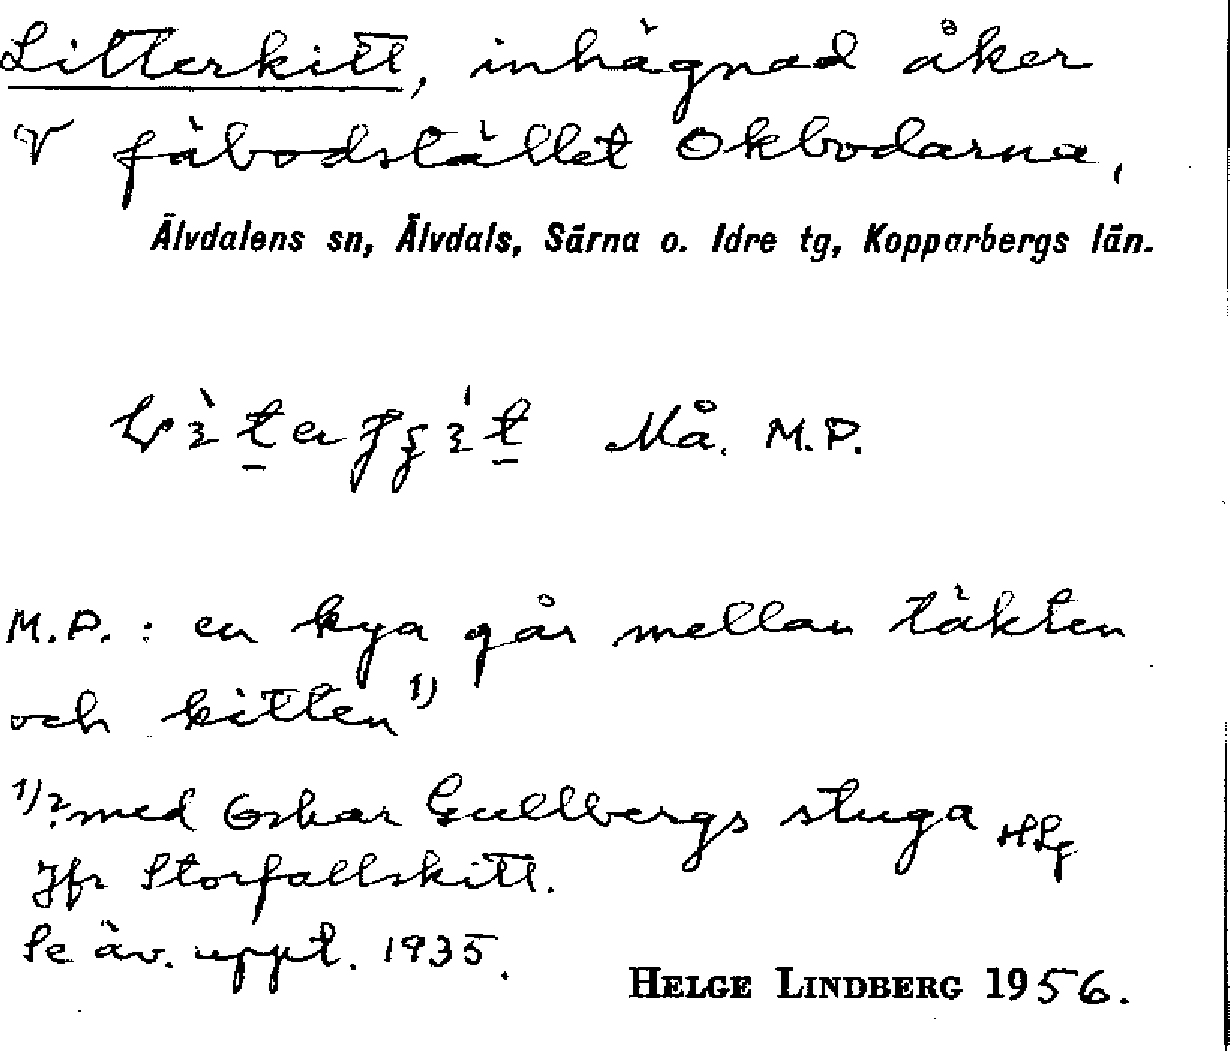 Litterkitt, inhägnad åker
V fäbodstället Okbodarna,
Älvdalens sn, Älvdals, Särna o. Idre tg, Kopparbergs län.
Må. M.P.
M.P. : en kya går mellan täkten
och kitten 1)
1) ? med Oskar Gullbergs stuga HLg
Jfr Storfallskitt.
Se äv. uppt. 1935.
HELGE LINDBERG 1956.